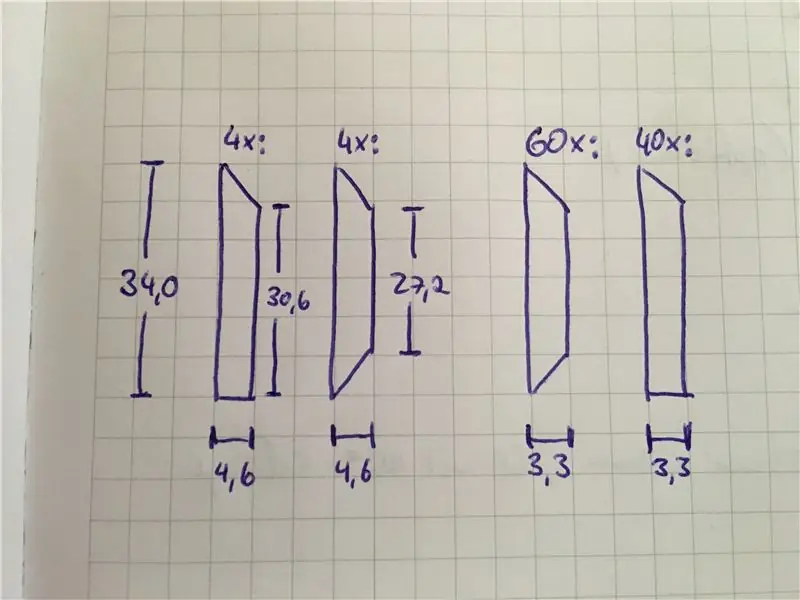 4x: 4x: 60x: 40x:
34,0 30,6 27,2
4,6 4,6 3,3 3,3